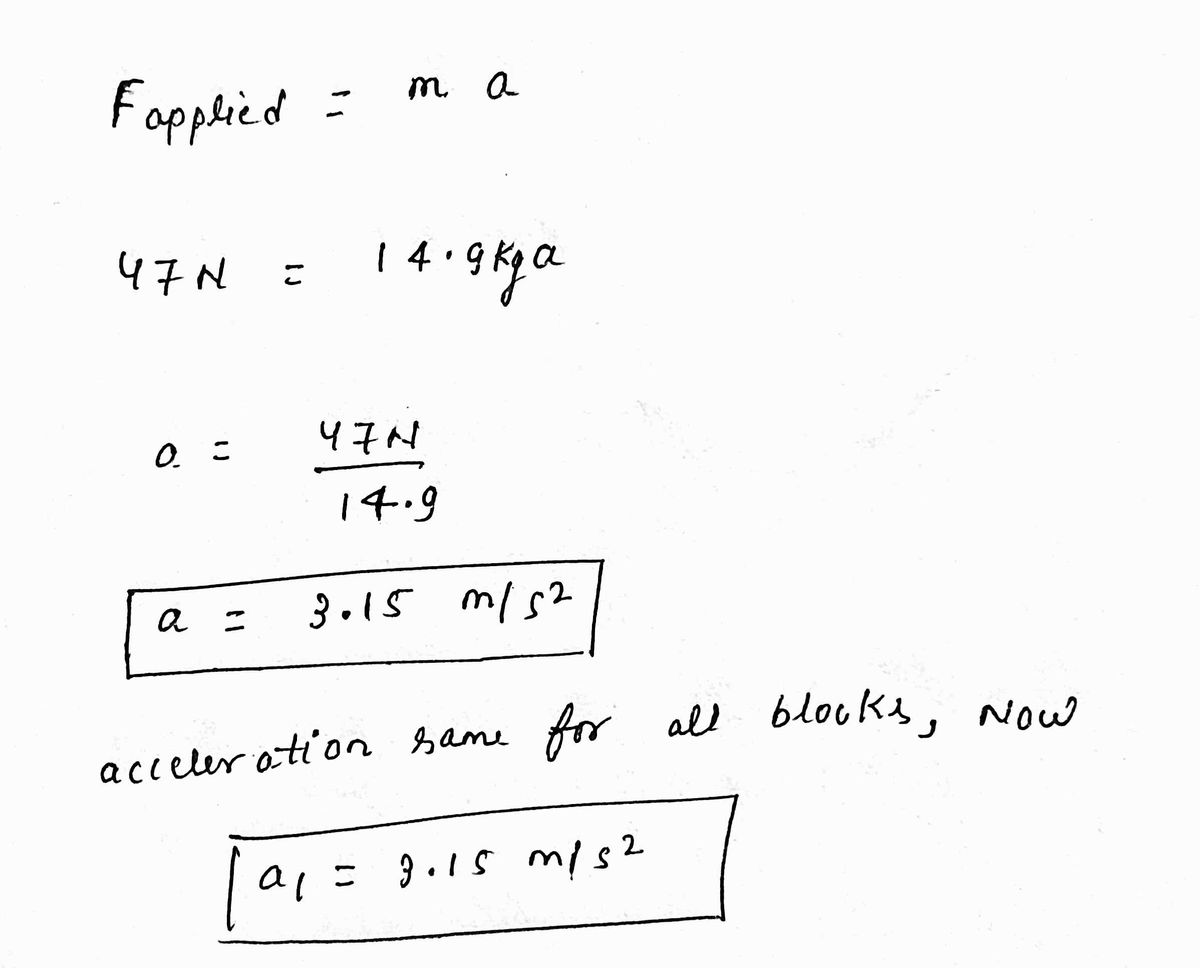 F applied = m a
47N = 14.9kg a
a = 47N / 14.9
a = 3.15 m/s²
acceleration same for all blocks, Now
a₁ = 3.15 m/s²